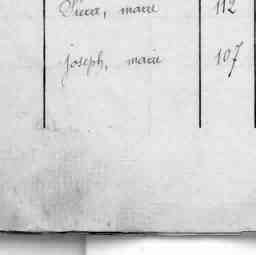 Pierre, marie 112
joseph, marie 107